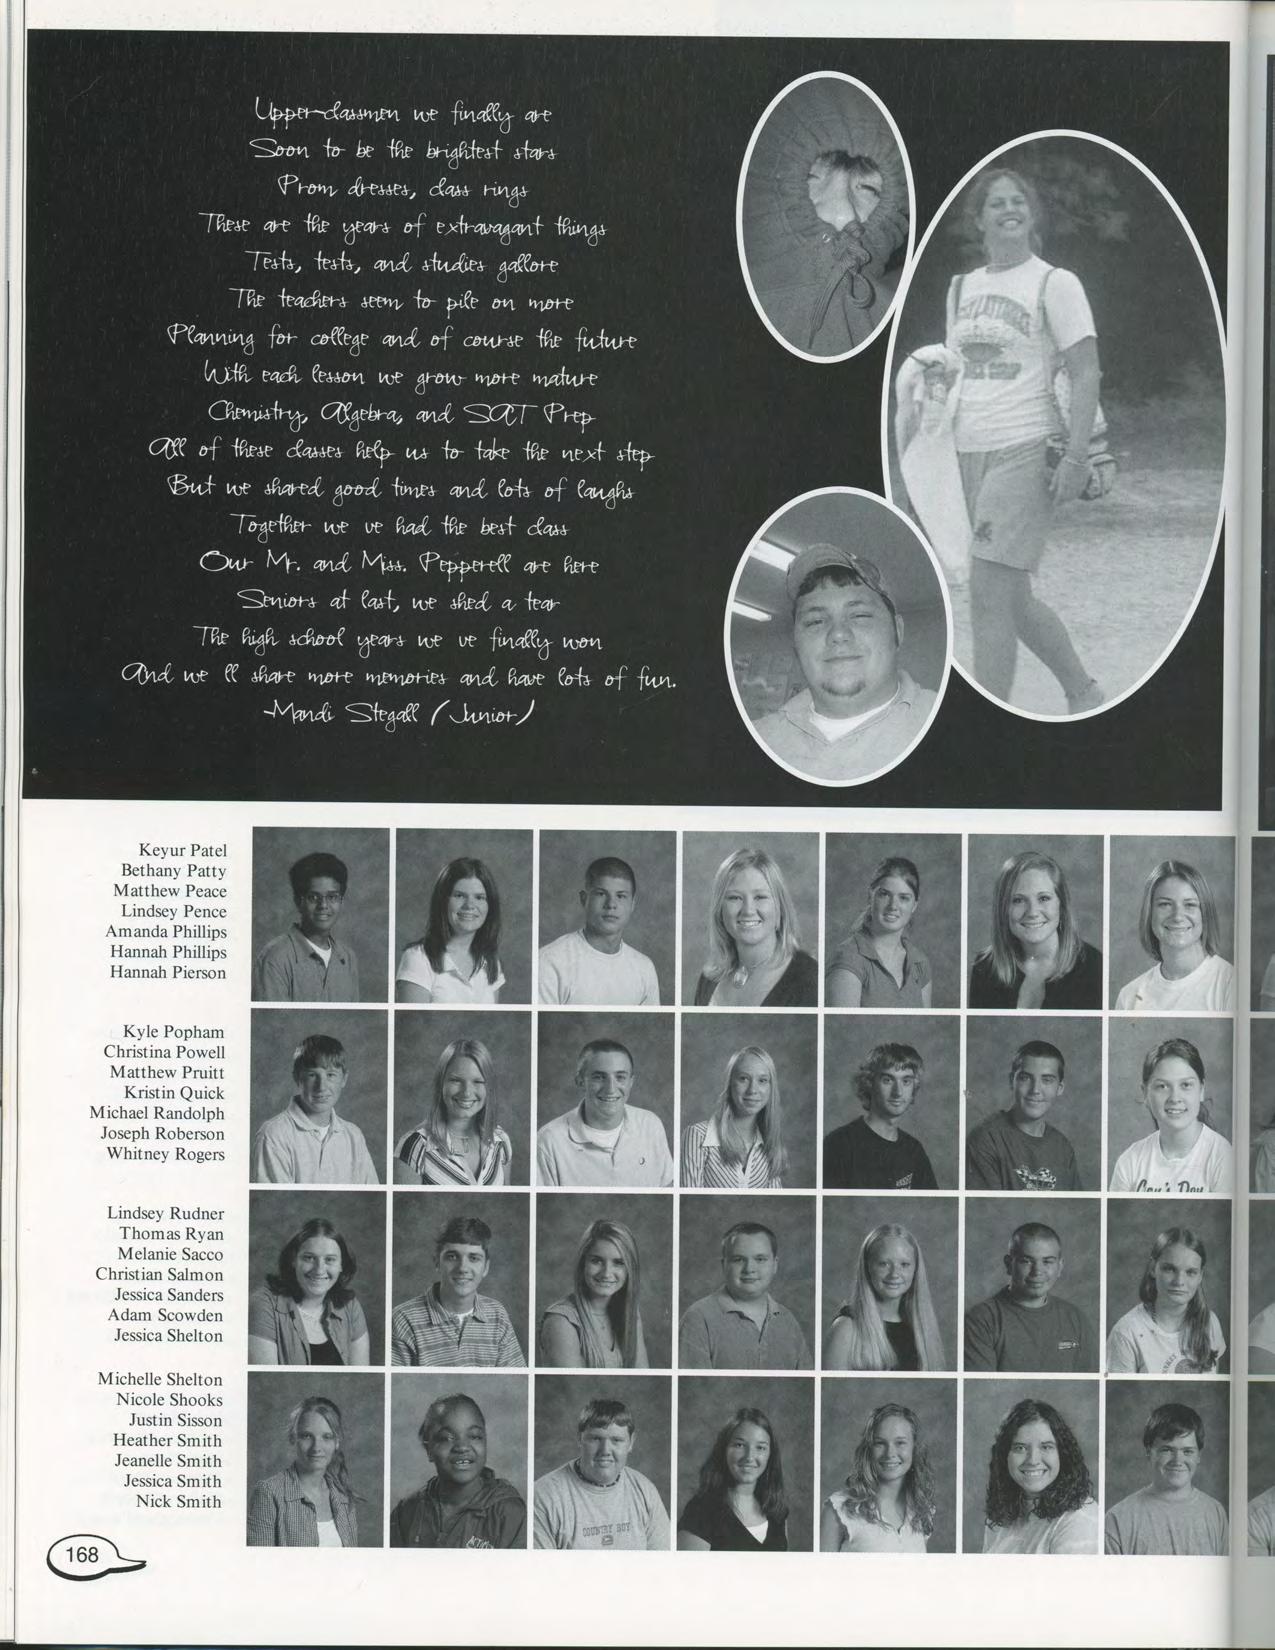 Upper-classmen we finally are
Soon to be the brightest stars
Prom dresses, class rings
These are the years of extravagant things
Tests, tests, and studies gallore
The teachers seem to pile on more
Planning for college and of course the future
With each lesson we grow more mature
Chemistry, Algebra, and SAT Prep
All of these classes help us to take the next step
But we shared good times and lots of laughs
Together we ve had the best class
Our Mr. and Miss. Pepperell are here
Seniors at last, we shed a tear
The high school years we ve finally won
And we ll share more memories and have lots of fun.
-Mandi Stegall (Junior)
Keyur Patel
Bethany Patty
Matthew Peace
Lindsey Pence
Amanda Phillips
Hannah Phillips
Hannah Pierson
Kyle Popham
Christina Powell
Matthew Pruitt
Kristin Quick
Michael Randolph
Joseph Roberson
Whitney Rogers
Lindsey Rudner
Thomas Ryan
Melanie Sacco
Christian Salmon
Jessica Sanders
Adam Scowden
Jessica Shelton
Michelle Shelton
Nicole Shooks
Justin Sisson
Heather Smith
Jeanelle Smith
Jessica Smith
Nick Smith
COUNTRY BOY
168